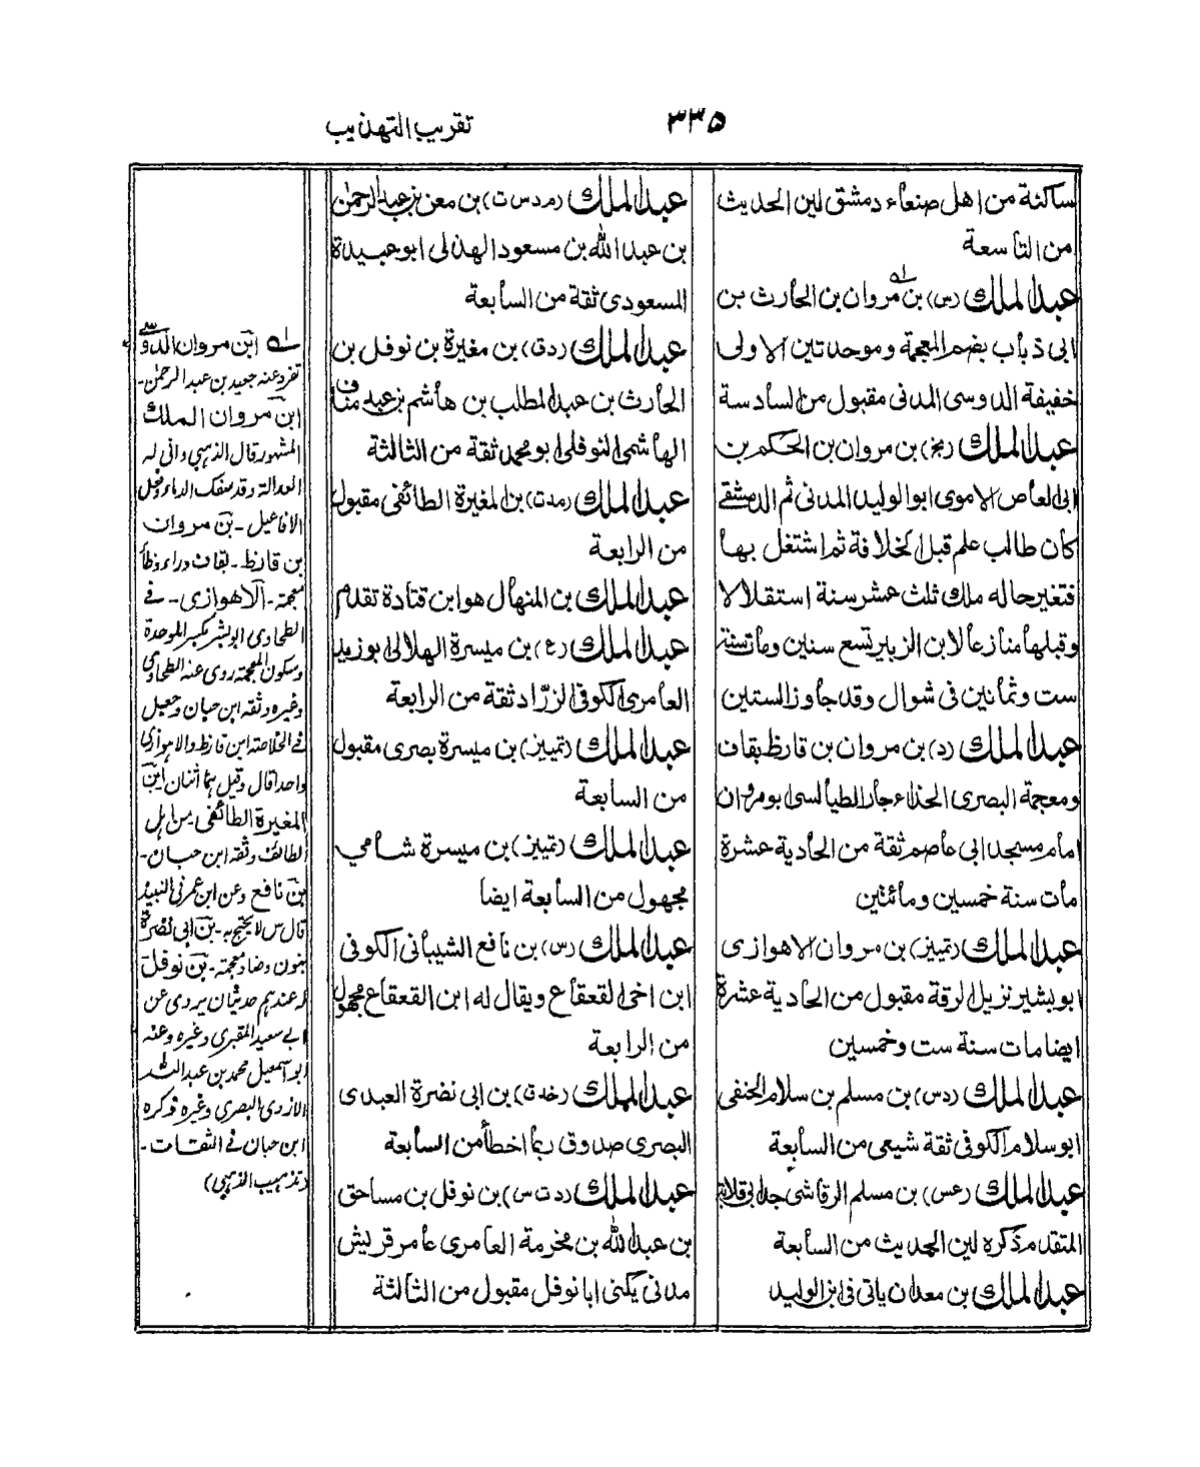 ۳۳۵
تقريب التهذيب
ساكنة من اهل صنعاء دمشق لين الحديث
من التاسعة
عبد الملك (س) بن مروان بن الحارث بن
ابى ذباب بضم المعجمة وموحدتين الاولى
خفيفة الدوسى المدنى مقبول من السادسة
عبد الملك (بخ) بن مروان بن الحكم بن
ابى العاص الاموى ابو الوليد المدنى ثم الدمشقى
كان طالب علم قبل الخلافة ثم اشتغل بها
فتغير حاله ملك ثلث عشر سنة استقلالا
وقبلها منازعا لابن الزبير تسع سنين ومات سنة
ست وثمانين فى شوال وقد جاوز الستين
عبد الملك (د) بن مروان بن قارظ بقاف
ومعجمة البصرى الحذاء جار الطيالسى ابو مروان
امام مسجد ابى عاصم ثقة من الحادية عشرة
مات سنة خمسين ومائتين
عبد الملك (تمييز) بن مروان الاهوازى
ابو بشير نزيل الرقة مقبول من الحادية عشرة
ايضا مات سنة ست وخمسين
عبد الملك (دس) بن مسلم بن سلام الحنفى
ابو سلام الكوفى ثقة شيعى من السابعة
عبد الملك (عس) بن مسلم الرقاشى جد ابى قلابة
المتقدم ذكره لين الحديث من السابعة
عبد الملك بن معدان ياتى فى ابن الوليد
عبد الملك (مدس ت) بن معن بن عبد الرحمن
بن عبد الله بن مسعود الهذلى ابو عبيدة
المسعودى ثقة من السابعة
عبد الملك (دق) بن مغيرة بن نوفل بن
الحارث بن عبد المطلب بن هاشم بن عبد مناف
الهاشمى النوفلى ابو محمد ثقة من الثالثة
عبد الملك (مدت) بن المغيرة الطائفى مقبول
من الرابعة
عبد الملك بن المنهال هو ابن قتادة تقدم
عبد الملك (ع) بن ميسرة الهلالى ابو زيد
العامرى الكوفى الزرّاد ثقة من الرابعة
عبد الملك (تمييز) بن ميسرة بصرى مقبول
من السابعة
عبد الملك (تمييز) بن ميسرة شامي
مجهول من السابعة ايضا
عبد الملك (س) بن نافع الشيبانى الكوفى
ابن اخى القعقاع ويقال له ابن القعقاع مجهول
من الرابعة
عبد الملك (خدق) بن ابى نضرة العبدى
البصرى صدوق ربما اخطأ من السابعة
عبد الملك (دت س) بن نوفل بن مساحق
بن عبد الله بن مخرمة العامرى عامر قريش
مدنى يكنى ابا نوفل مقبول من الثالثة
له ابن مروان الدوسي
تفرد عنه جعيد بن عبد الرحمن-
ابن مروان الملك
المشهور قال الذهبي وانى له
العدالة وقد سفك الدماء وفعل
الافاعيل - بن مروان
بن قارظ - بقاف وراء وظاء
معجمة - الاهوازى - في
الطحاوى ابو بشر بكسر الموحدة
وسكون المعجمة روى عنه الطحاوي
وغيره وثقه ابن حبان وجعل
في الخلاصة ابن قارظ والاهوازى
واحدا قال وقيل هما اثنان ابن
المغيرة الطائفى من اهل
الطائف وثقه ابن حبان-
بن نافع وعن ابن عمر فى النبيذ
قال س لا يحتج به - بن ابى نضرة
بنون وضاد معجمة - بن نوفل
له عندهم حديثان يروى عن
ابي سعيد المقبرى وغيره وعنه
ابو اسمعيل محمد بن عبد الله
الازدى البصرى وغيره ذكره
ابن حبان في الثقات-
(تذهيب الذهبى)